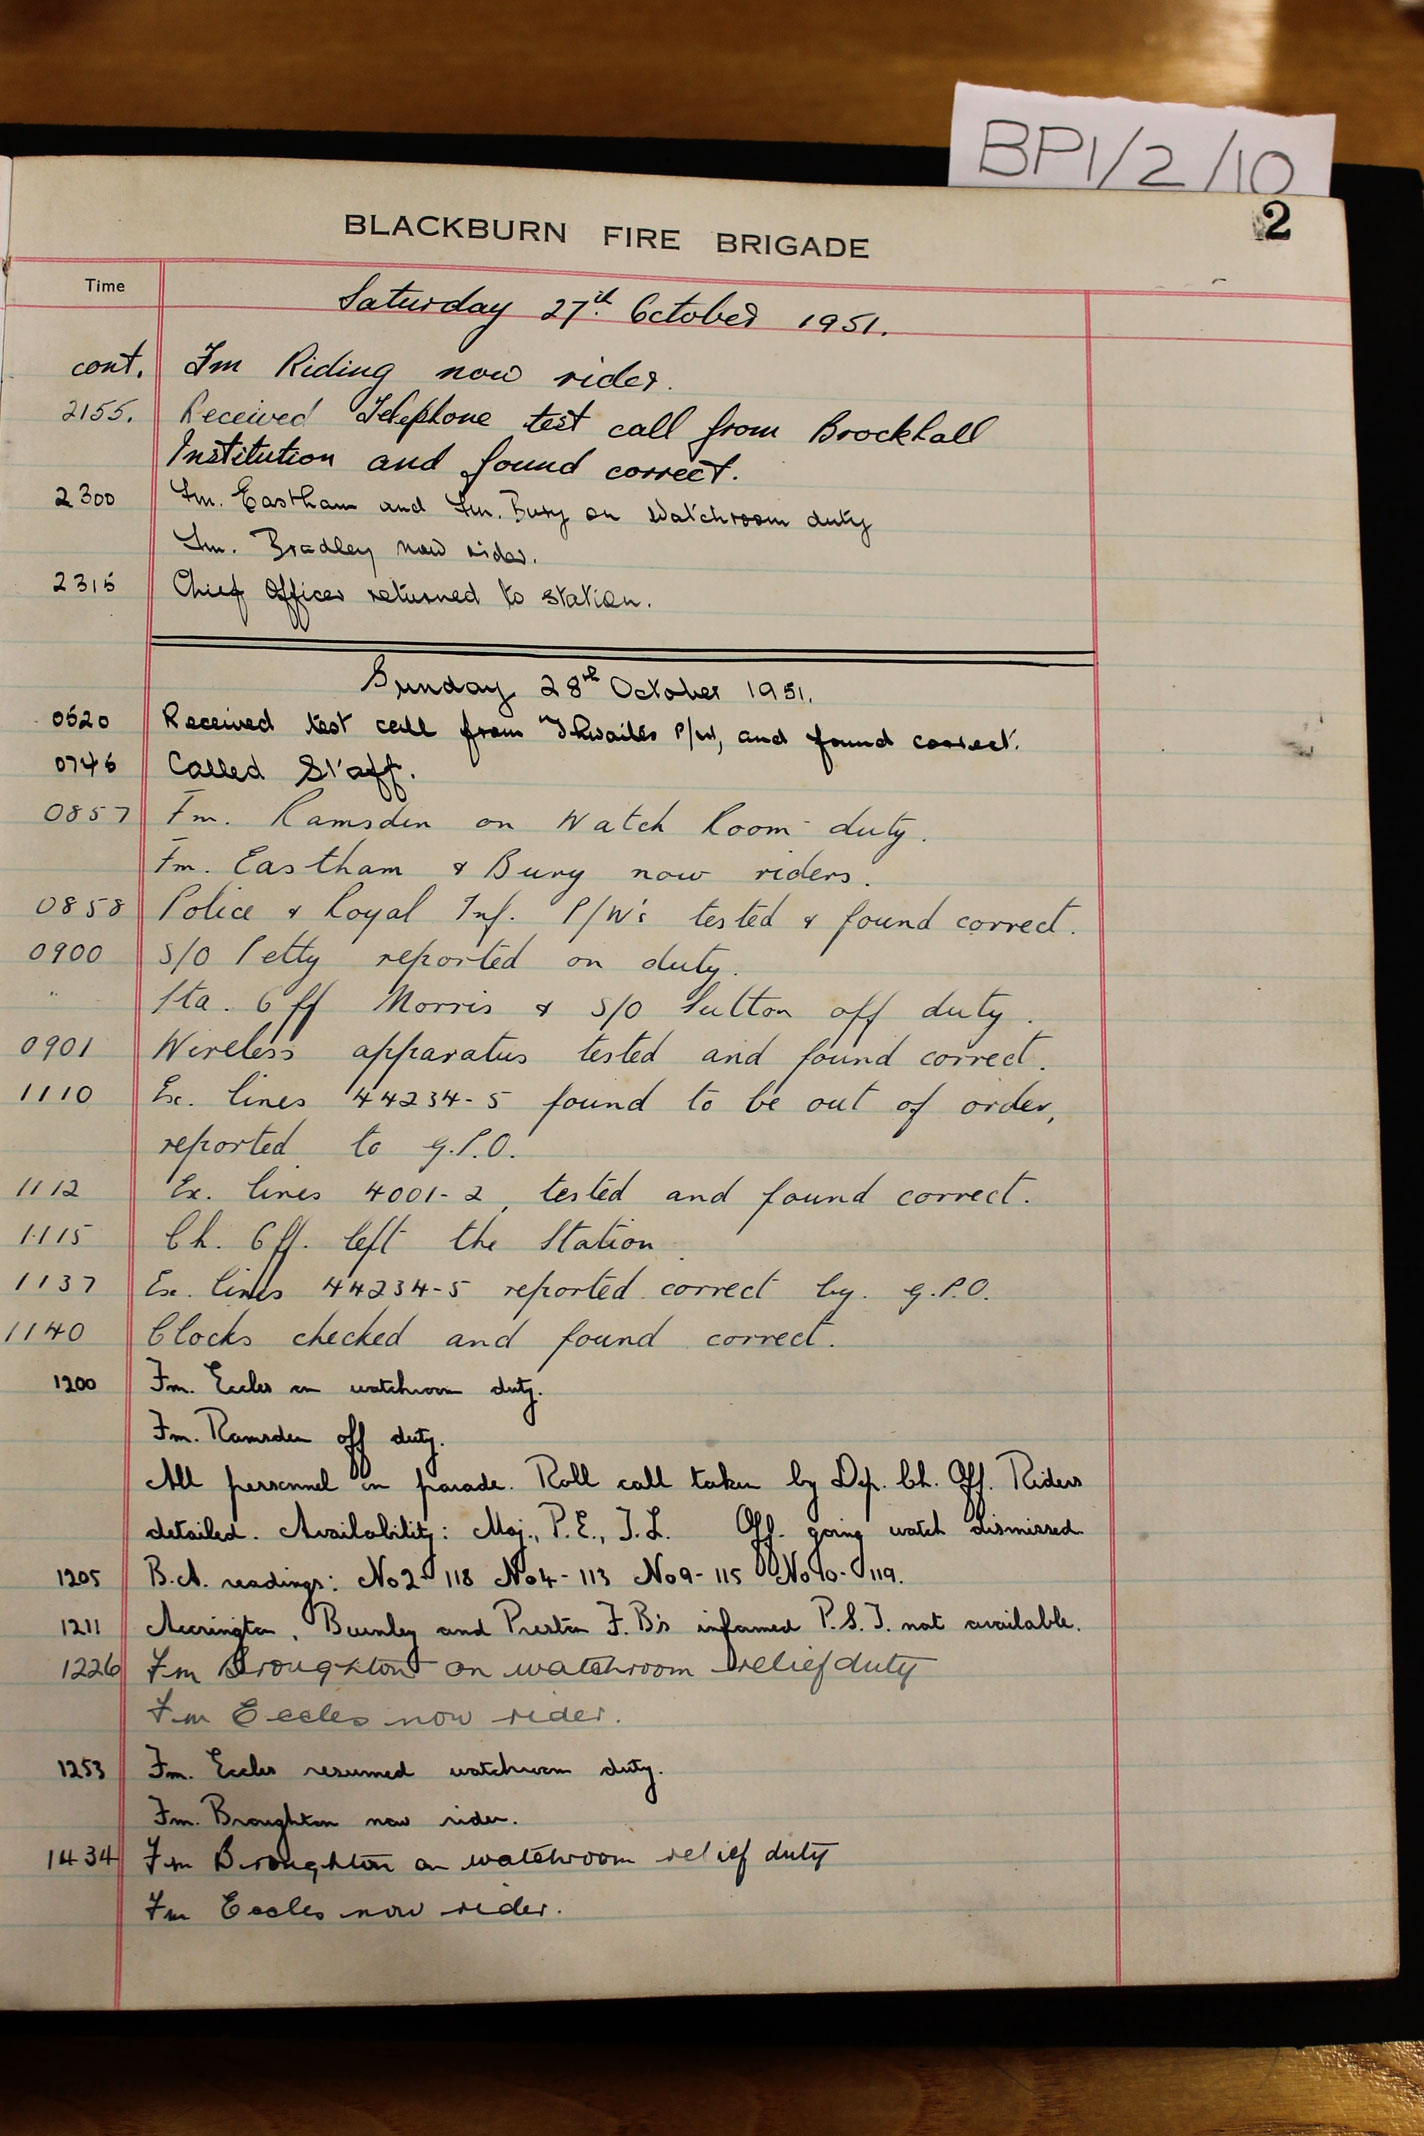 BP1/2/10
2
BLACKBURN FIRE BRIGADE
Time
Saturday 27th October 1951.
cont. Fm Riding now rider.
2155. Received Telephone test call from Brockhall
Institution and found correct.
2300 Fm. Eastham and Fm. Bury on Watchroom duty
Fm. Bradley now rider.
2315 Chief Officer returned to station.
Sunday 28th October 1951.
0620 Received test call from Thwaites P/W, and found correct.
0745 Called Staff.
0857 Fm. Ramsden on Watch Room duty.
Fm. Eastham & Bury now riders.
0858 Police & Royal Inf. P/W's tested & found correct.
0900 S/O Petty reported on duty.
" Sta. Off Morris & S/O Sutton off duty.
0901 Wireless apparatus tested and found correct.
1110 Ex. lines 44234-5 found to be out of order,
reported to G.P.O.
1112 Ex. lines 4001-2, tested and found correct.
1115 Ch. Off. left the Station.
1137 Ex. lines 44234-5 reported correct by. G.P.O.
1140 Clocks checked and found correct.
1200 Fm. Eccles on watchroom duty.
Fm. Ramsden off duty.
All personnel on parade. Roll call taken by Dep. Ch. Off. Riders
detailed. Availability: Maj., P.E., T.L. Off. going watch dismissed
1205 B.A. readings: No2- 118 No4- 113 No9- 115 No10- 119.
1211 Accrington, Burnley and Preston F.B's informed P.S.T. not available.
1226 Fm Broughton on watchroom relief duty
Fm Eccles now rider.
1253 Fm. Eccles resumed watchroom duty.
Fm. Broughton now rider.
1434 Fm Broughton on watchroom relief duty
Fm Eccles now rider.